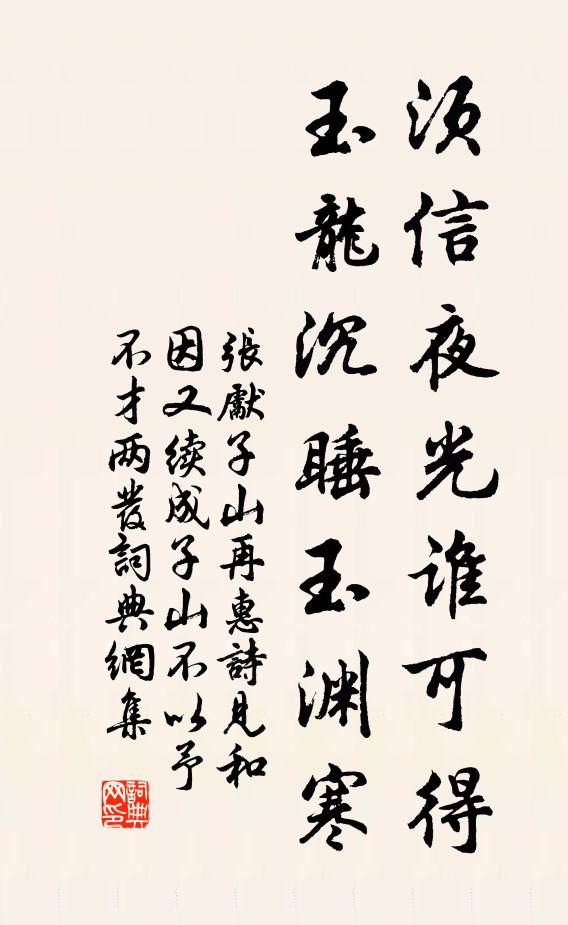 须信夜光谁可得
玉龍沉睡玉渊寒
張獻子山再惠詩見和
因又续成子山不以予
不才两發詞典網集
詞典网印